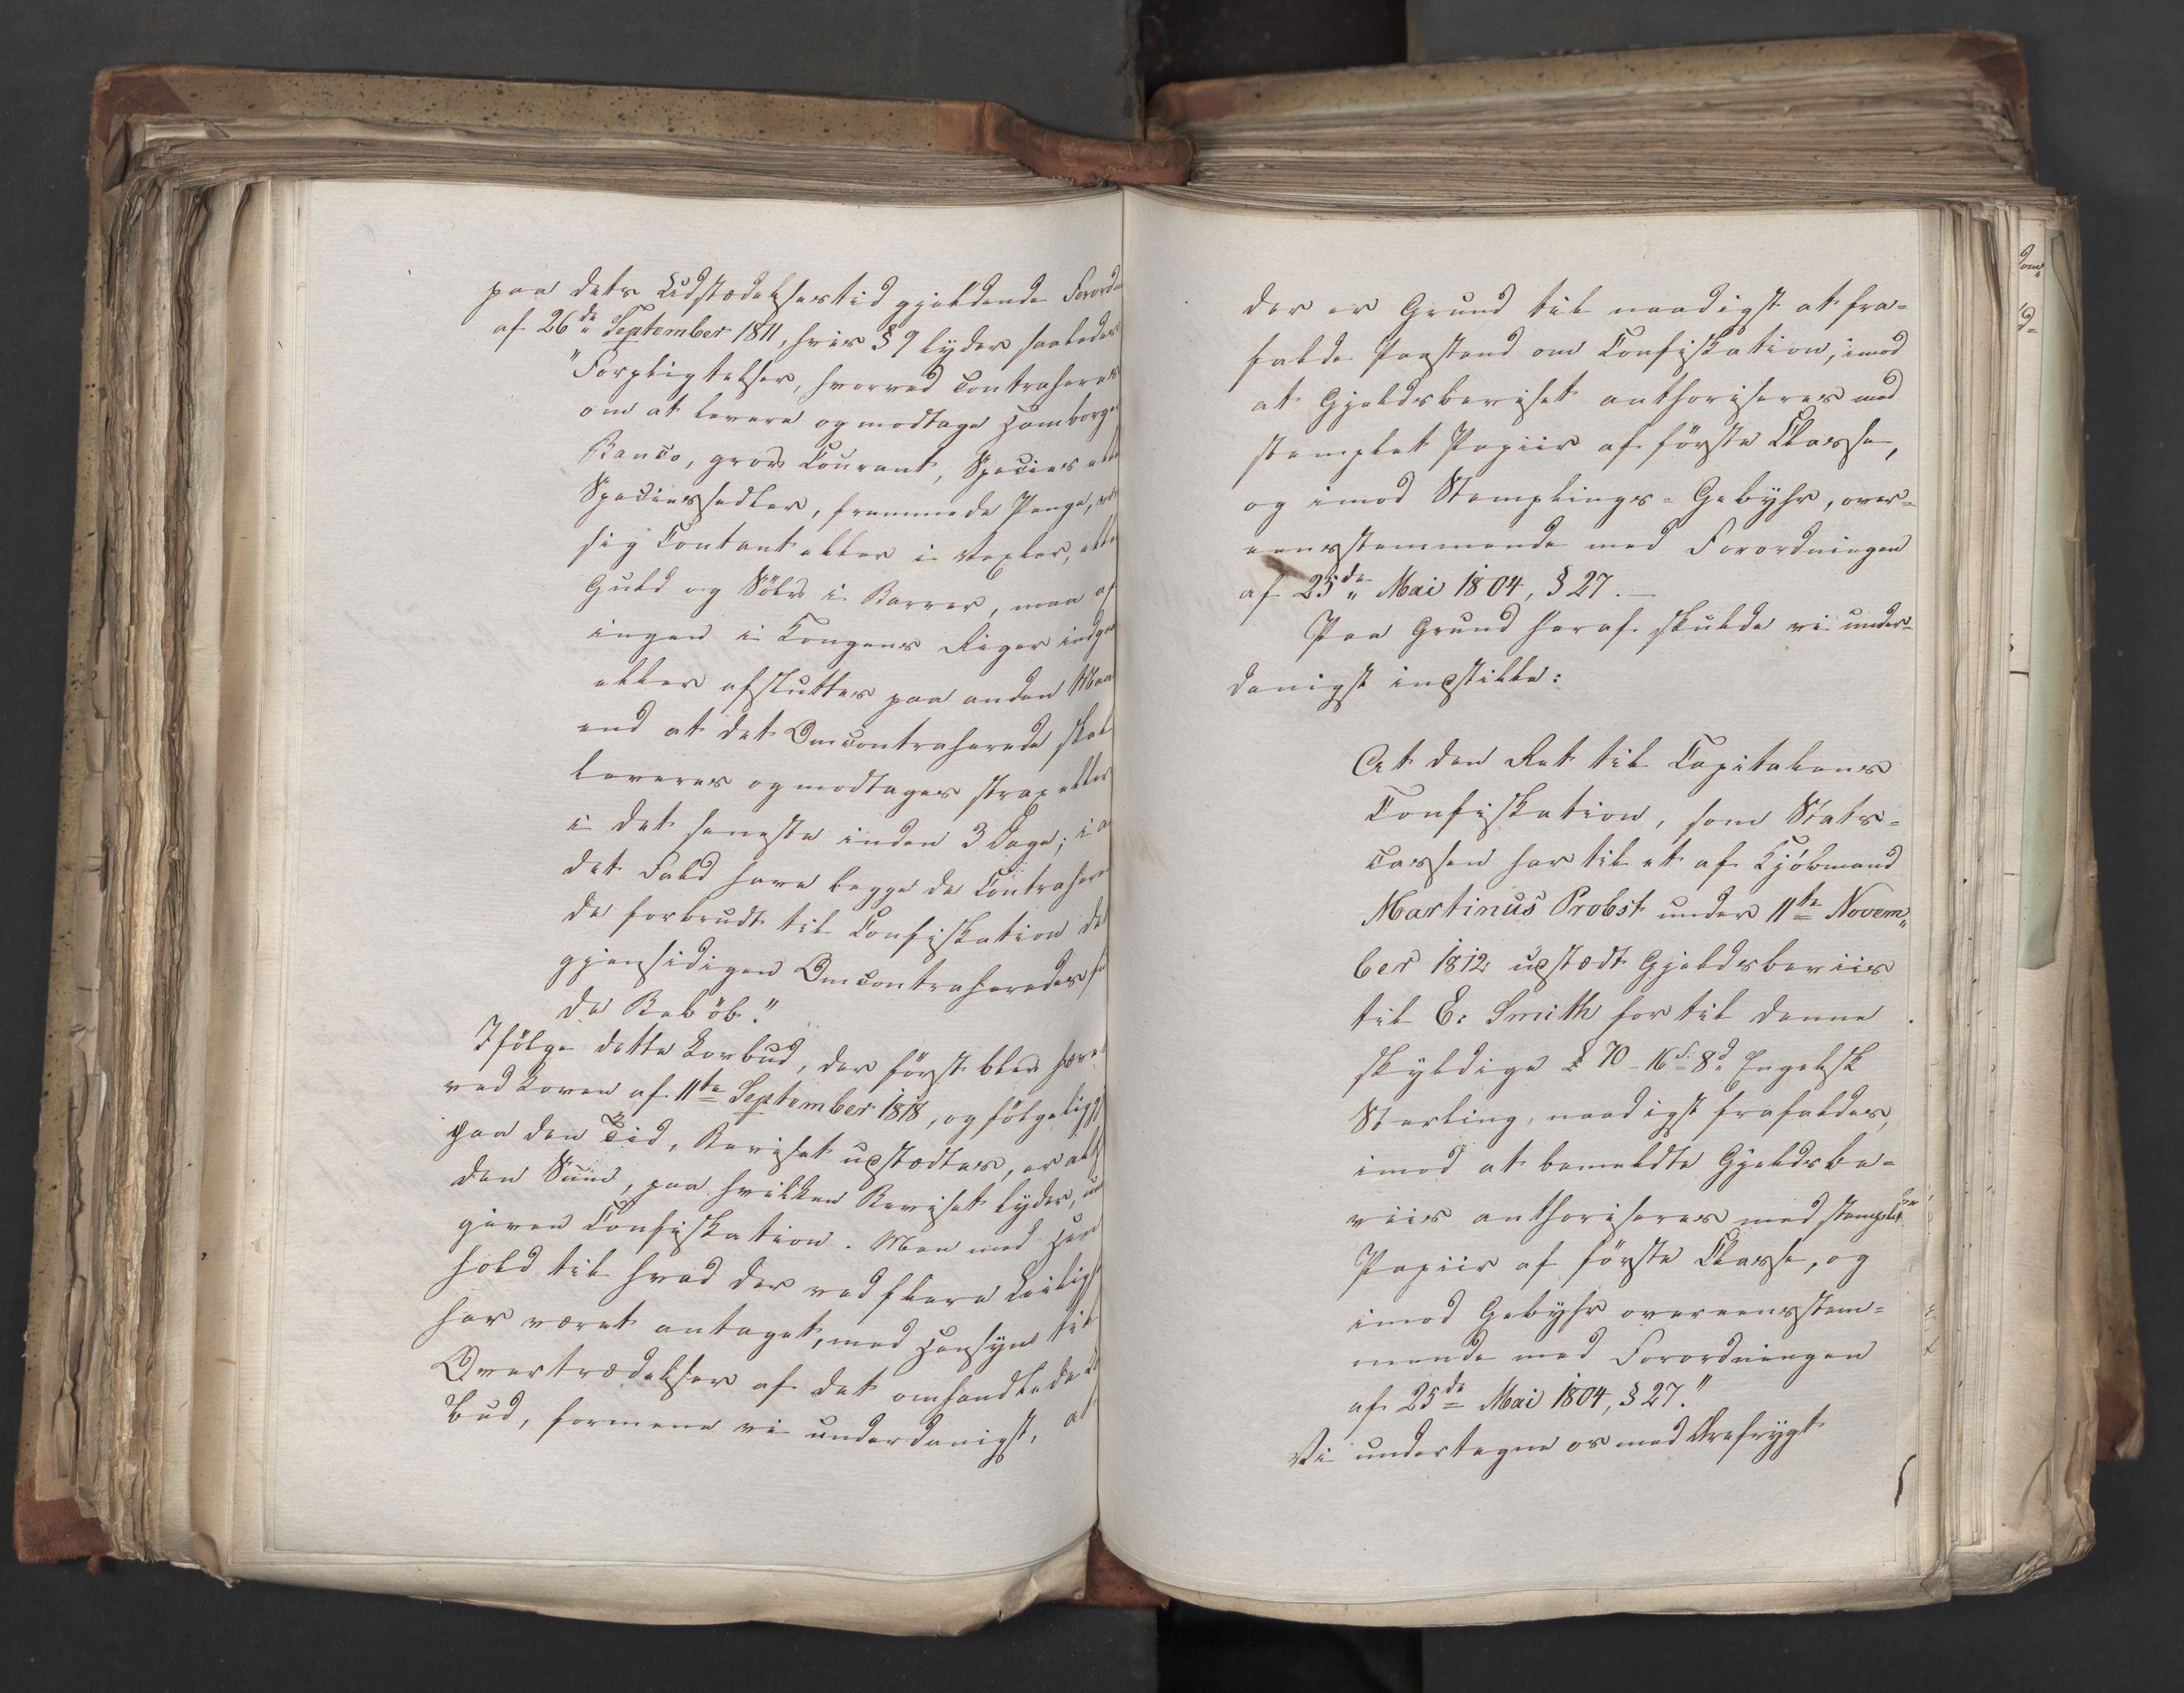 paa dets Udstædelsestid gjeldende Forordn
af 26de September 1811, hvis § 9 lyder saaledes
"Forpligtelser, hvorved contraheres
om at levere og modtage Hamborger
Banco, grov Courant, Species elle
Speciessedler, fremmede Penge,
sig Contant eller i Vexler, elle
Guld og Sölv i Barrer, maa af
ingen i Kongens Riger indgaa
eller afsluttes paa anden Maa
end at det Omcontraherede skal
leveres og modtages strax eller
i det seneste inden 3 Dage; i a
det Fald have begge de Contrahere
de forbrudt til Confiskation de
gjensidigen Omcontraheredes
de Belöb."
Ifölge dette Lovbud, der först blev hævet
ved Loven af 11te September 1818, og fölgelig gj
paa den Tid, Beviset upstædtes, er alts
den Sum, paa hvilken Beviset lyder, un
given Confiskation. Men med Hen
hold til hvad der ved flere Leilighe
har været antaget, med Hensyn til
Overtrædelser af det omhandlede L
bud, formene vi underdanigst, at
der er Grund til naadigst at fra-
falde Paastand om Confiskation, imod
at Gjeldsbeviset authoriseres med
stemplet Papiir af förste Classe,
og imod Stemplings-Gebyhr, over-
eensstemmende med Forordningen
af 25de Mai 1804, § 27.-
Paa Grund heraf skulde vi under-
danigst inpstille:
At den Ret til Capitalens
Confiskation, som Stats-
cassen har til et af Kjöbmand
Martinus Probst under 11te Novem-
ber 1812 upstædt Gjeldsbeviis
til E. Smith for til denne
skyldige £ 70-16s.-8d Engelsk
Sterling, naadigst frafaldes,
imod at bemeldte Gjeldsbe-
viis authoriseres med stemplet
Papiir af förste Classe, og
imod Gebyhr overeensstem-
mende med Forordningen
af 25de Mai 1804, § 27."
Vi undertegne os med Ærefrygt